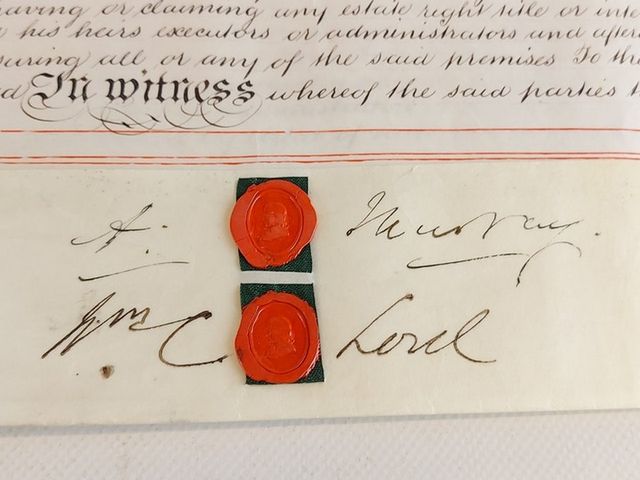 having or claiming any estate right title or
his heirs executors or administrators and
all or any of the said premises To
In witness whereof the said parties
A. Murray.
Wm C Lord